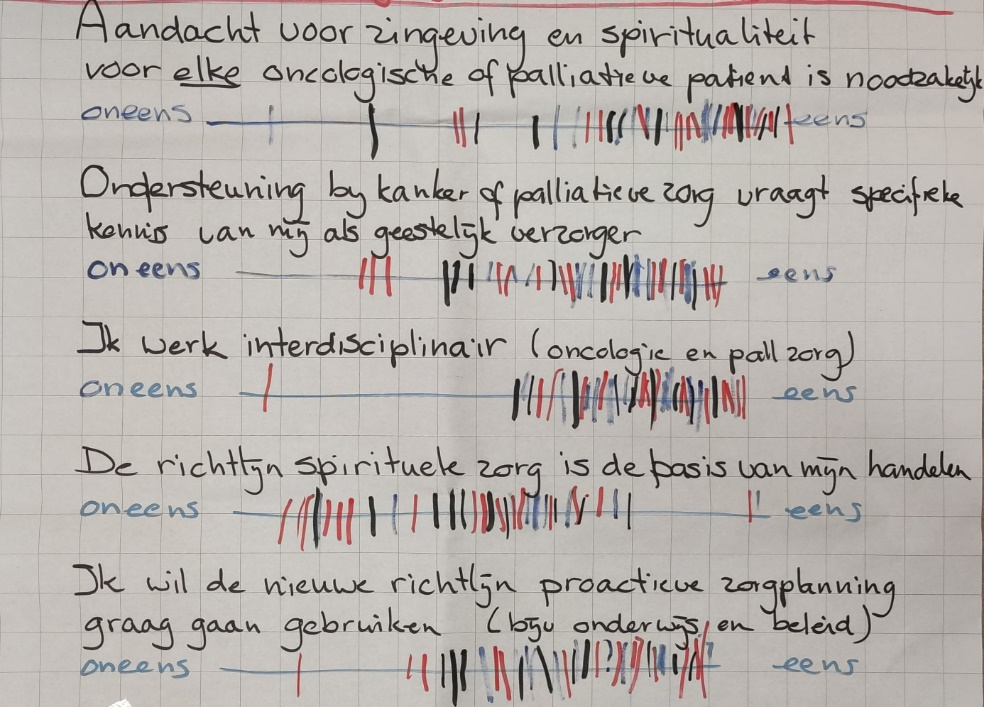 Aandacht voor zingeving en spiritualiteit
voor elke oncologische of palliatieve patiend is noodzakelijk
oneens eens
Ondersteuning by kanker of palliatieve zorg vraagt specifieke
kennis van mij als geestelijk verzorger
oneens eens
Ik werk interdisciplinair (oncologie en pall zorg)
oneens eens
De richtlijn spirituele zorg is de basis van mijn handelen
oneens eens
Ik wil de nieuwe richtlijn proactieve zorgplanning
graag gaan gebruiken (bijv onderwijs/en beleid)
oneens ? ? eens